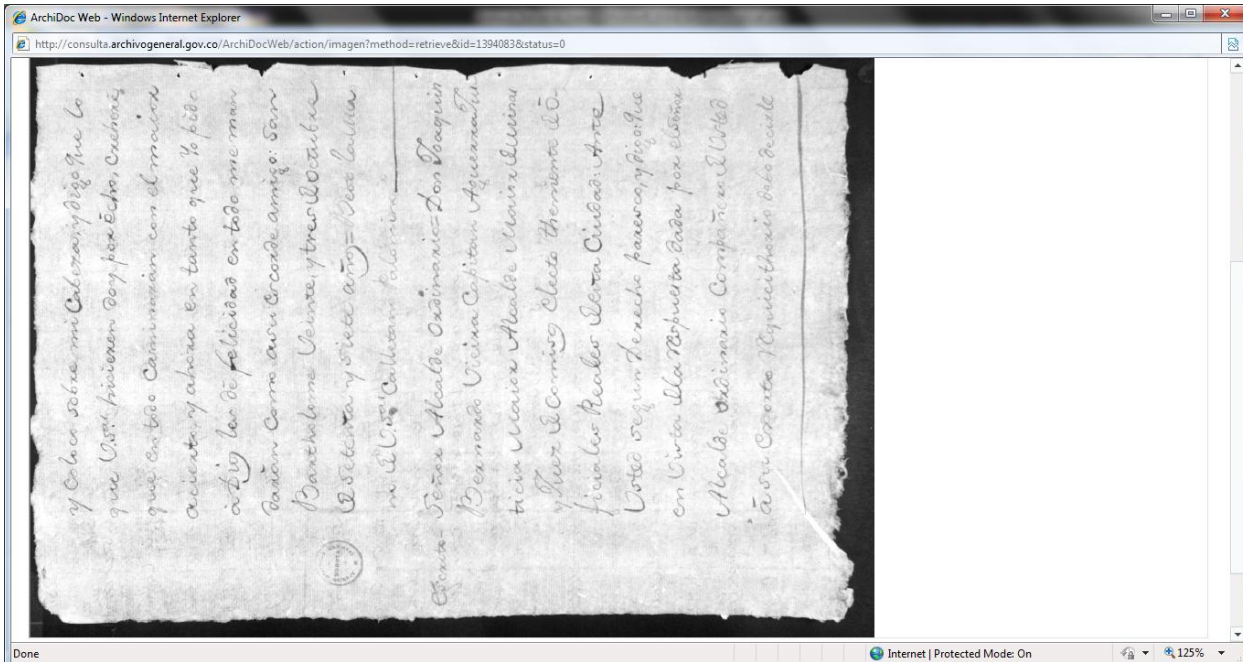 ArchiDoc Web - Windows Internet Explorer
http://consulta.archivogeneral.gov.co/ArchiDocWeb/action/imagen?method=retrieve&id=1394083&status=0
y Coloco sobre mi Cabeza, y digo que lo
que V.s hisieren doy por echo, Creheré
que en todo Caminarán con el maior
acierto, y ahora en tanto que Yo pido
a Dios les dé felicidad en todo me man
darán como a su Cocorde amigo: San
Bartholome Veinte, y tres de Octubre
de setenta y siete años= Besa la
m de V.s Calletano
Escrito= Señor Alcalde Ordinario= Don Joaquin
Bernardo Capitan Aguerra
ticia Maior Alcalde Maior
y Juez de Comisos Electo theniente de O
ficiales Reales de esta Ciudad: Ante
Usted segun derecho paresco, y digo: que
en Vista de la respuesta dada por el Señor
Alcalde Ordinario Compañero de Usted
a su Exorto Requicithorio debo decirle
Done
Internet | Protected Mode: On
125%